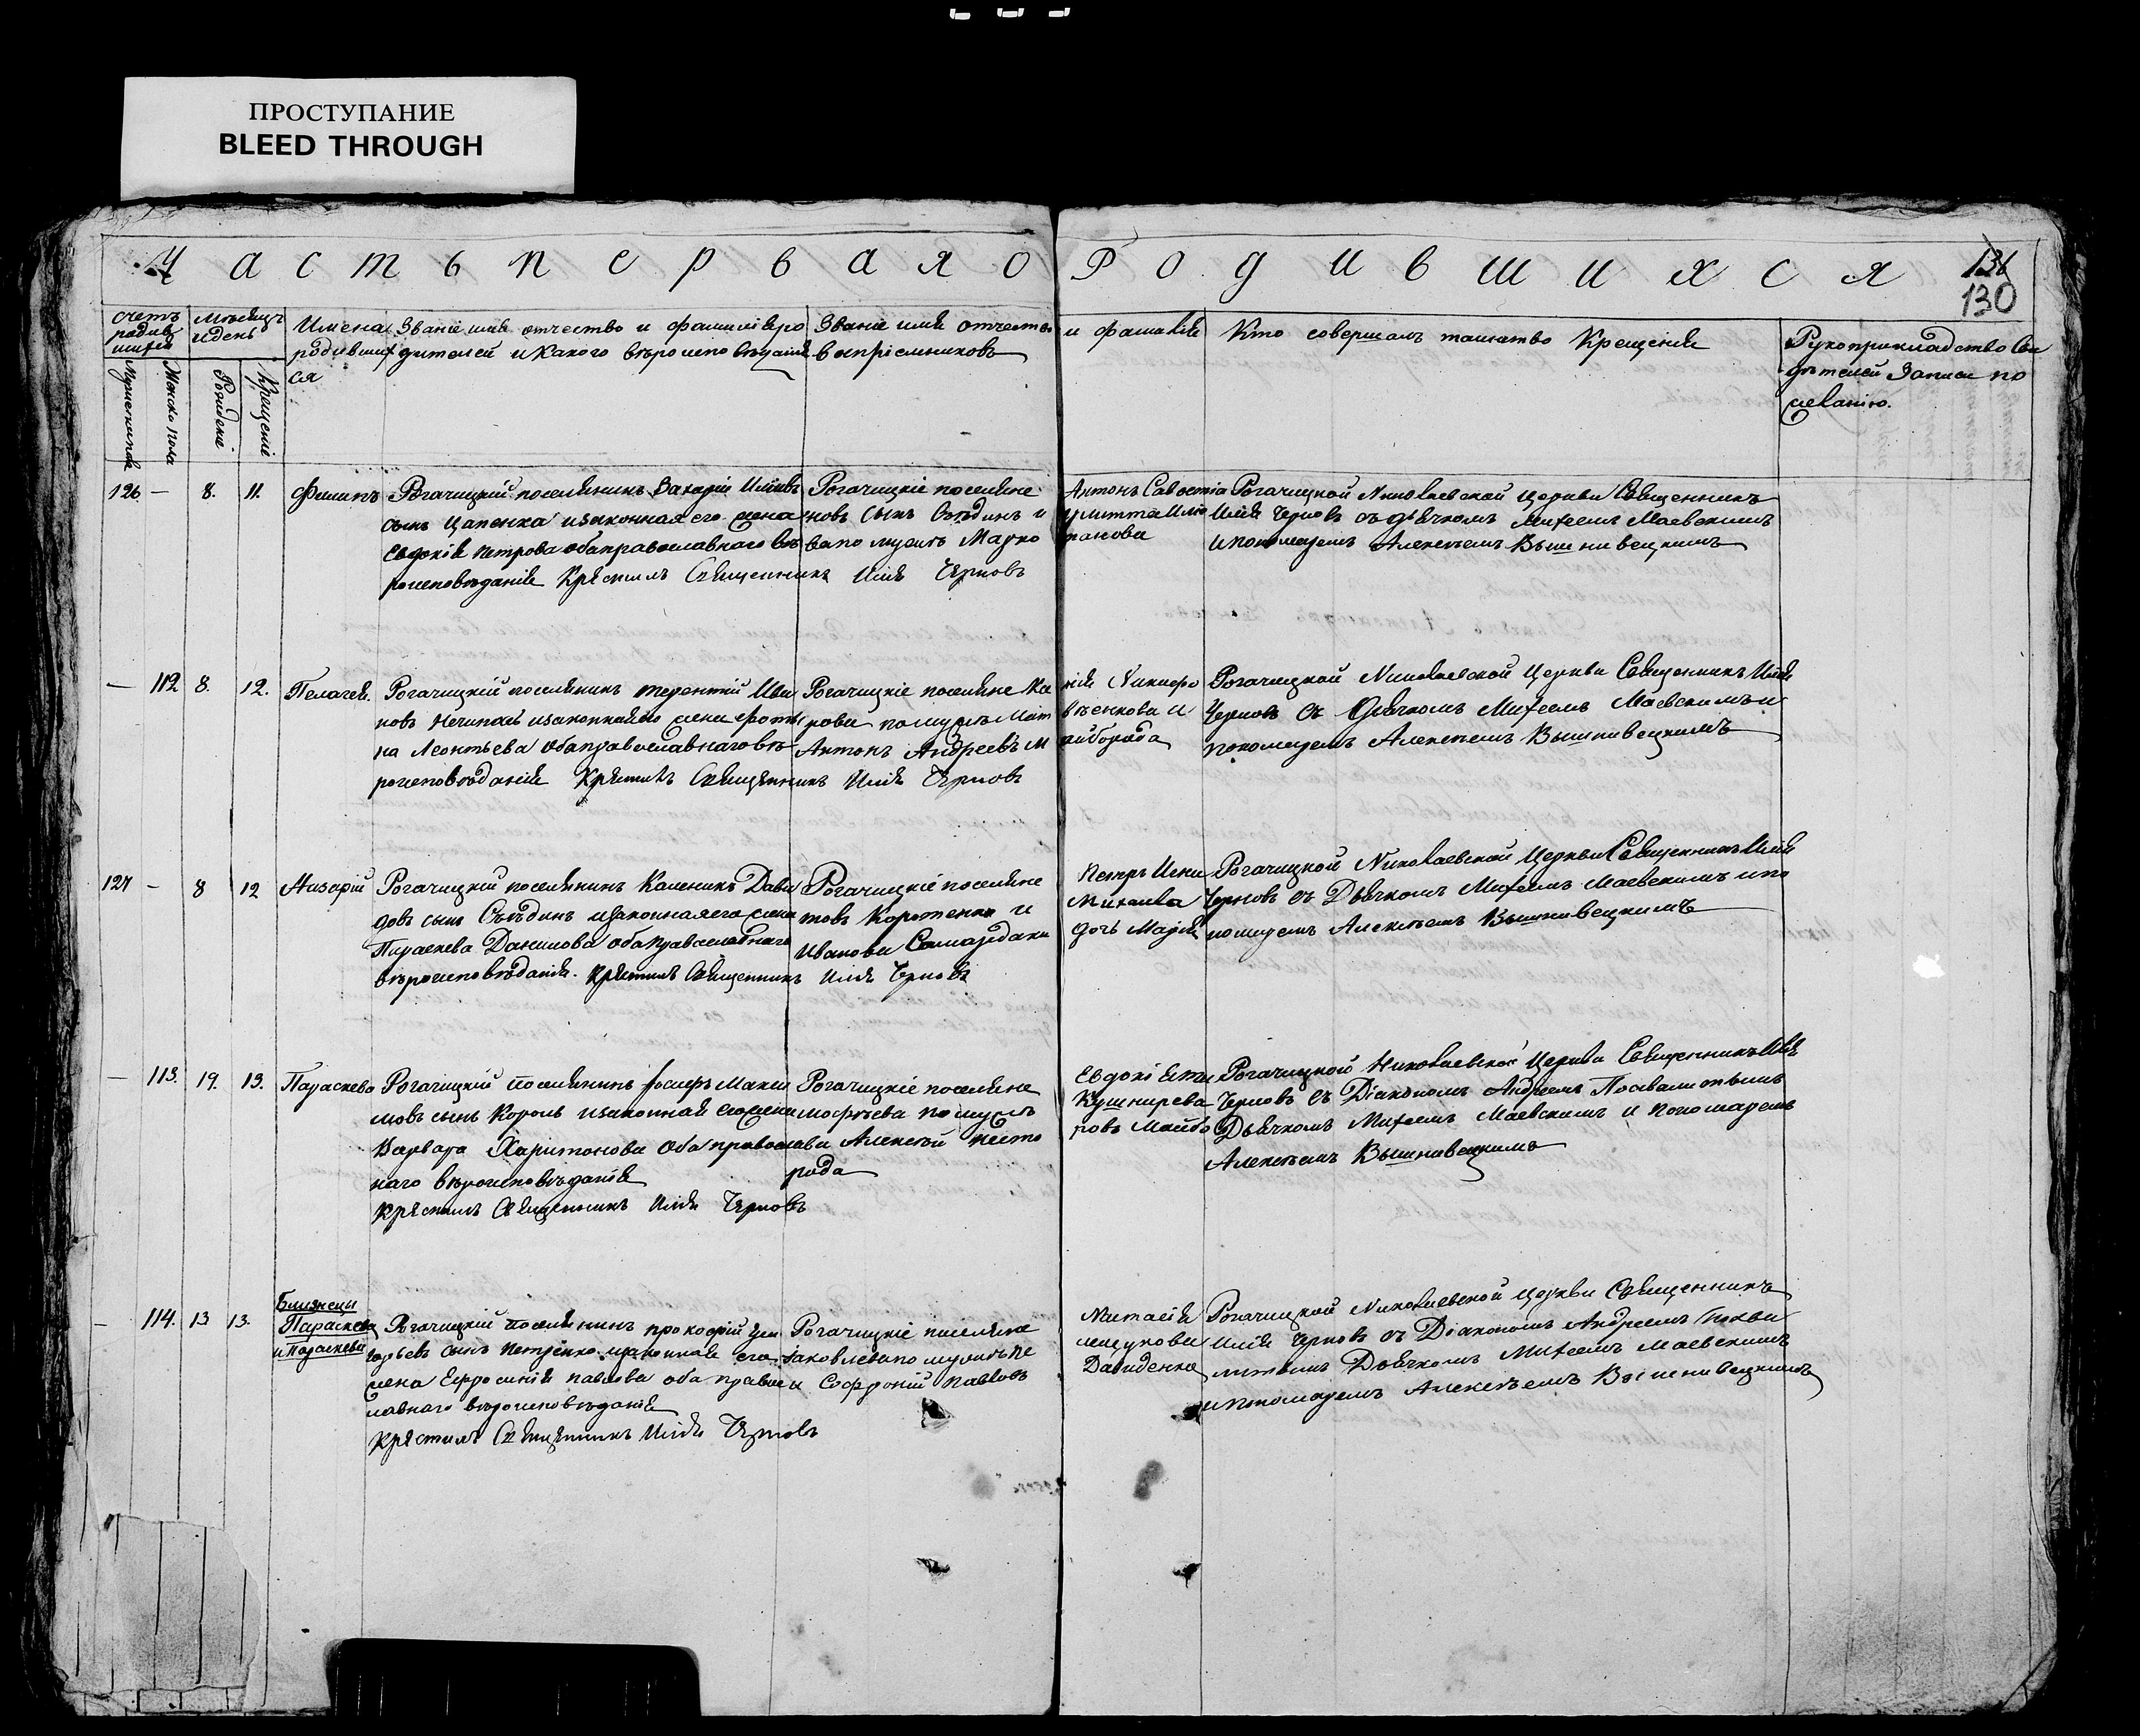 ПРОСТУПАНИЕ
BLEED THROUGH
Часть перва я о Родившихся
136
130
Счетъ родившихся
Мѣсяцъ и день
Имена родившихся
Званіе имя отчество и фамилія родителей и какого вѣроисповѣданія
Званіе имя отчество и фамилія воспріемниковъ
Кто совершалъ таинство Крещенія
Рукоприкладство свидѣтелей записи по желанію.
Мужеска пола
Женска пола
Рожденіе
Крещеніе
126 — 8. 11. Филипъ
Рогачицкій поселянинъ Захарій Иліевъ
сынъ Цапенка и законная его жена
Евдокія Петрова оба православнаго вѣ
роисповѣданія Крестилъ Священникъ Илія Черновъ
Рогачицкіе поселяне Антонъ Савостіа
новъ сынъ
ва по мужѣ Марко
Рогачицкой Николаевской Церкви Священникъ
Илія Черновъ съ дьячкомъ Михеемъ Маевскимъ
и пономаремъ Алексѣемъ Вышнивецкимъ
— 112 8. 12. Пелагея.
Рогачицкій поселянинъ Терентій Ива
новъ Нечипась и законная его жена Фоти
на Леонтьева оба православнаго вѣ
роисповѣданія Крестилъ Священникъ Илія Черновъ
Рогачицкіе поселяне Ксе
нія Никифо
рова по мужѣ
Антонъ Андреевъ Майборода
Рогачицкой Николаевской Церкви Священникъ Илія
Черновъ съ Дьячкомъ Михеемъ Маевскимъ и
пономаремъ Алексѣемъ Вышнивецкимъ
127 — 8 12 Назарій
Рогачицкій поселянинъ Каленикъ Дави
довъ сынъ Съѣдинъ и законная его жена
Параскева Данилова оба православнаго
вѣроисповѣданія. Крестилъ Священникъ Илія Черновъ
Рогачицкіе поселяне Петръ
товъ Коротенко и Михаила
Иванова дочь Марія
Рогачицкой Николаевской Церкви Священникъ Илія
Черновъ съ Дьячкомъ Михеемъ Маевскимъ и по
номаремъ Алексѣемъ Вышнивецкимъ
— 113. 19. 13. Параскева
Рогачицкій поселянинъ Іосифъ Макси
мовъ сынъ Король и законная его жена
Варвара Харитонова оба православ
наго вѣроисповѣданія
Крестилъ Священникъ Илія Черновъ
Рогачицкіе поселяне
мофѣева по мужѣ Кушнирева
Алексѣй Майбо
рода
Рогачицкой Николаевской Церкви Священникъ Илія
Черновъ съ Діакономъ Андреемъ
Дьячкомъ Михеемъ Маевскимъ и пономаремъ
Алексѣемъ Вышнивецкимъ
— 114. 13 13. Близнецы
Параскева
и Параскева
Рогачицкій поселянинъ Прокофій Гри
горьевъ сынъ Петренко и законная его
жена Ефросинія Павлова оба правос
лавнаго вѣроисповѣданія
Крестилъ Священникъ Илія Черновъ
Рогачицкіе поселяне Наталія
Яковлева по мужѣ
и Софроній Павловъ Давиденко
Рогачицкой Николаевской Церкви Священникъ
Илія Черновъ съ Діакономъ Андреемъ
Дьячкомъ Михеемъ Маевскимъ
и пономаремъ Алексѣемъ Вышнивецкимъ